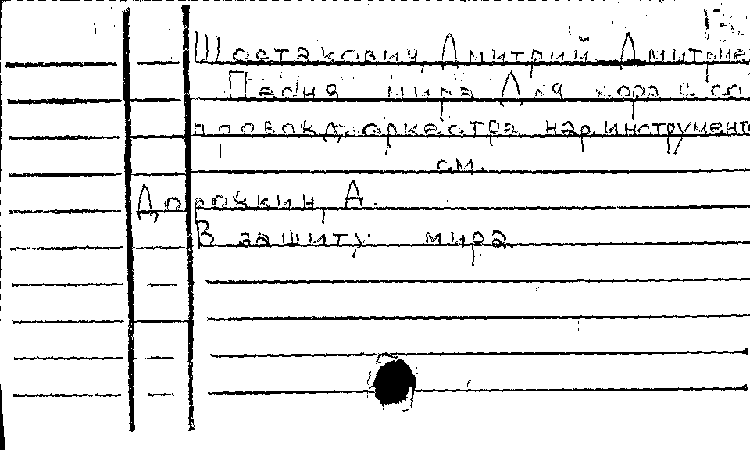 Шостакович, Дмитрий Дмитрие
Песня мира Для хора с со
провожд. оркестра нар. инструмент
см.
Дорожкин, А.
В защиту мира